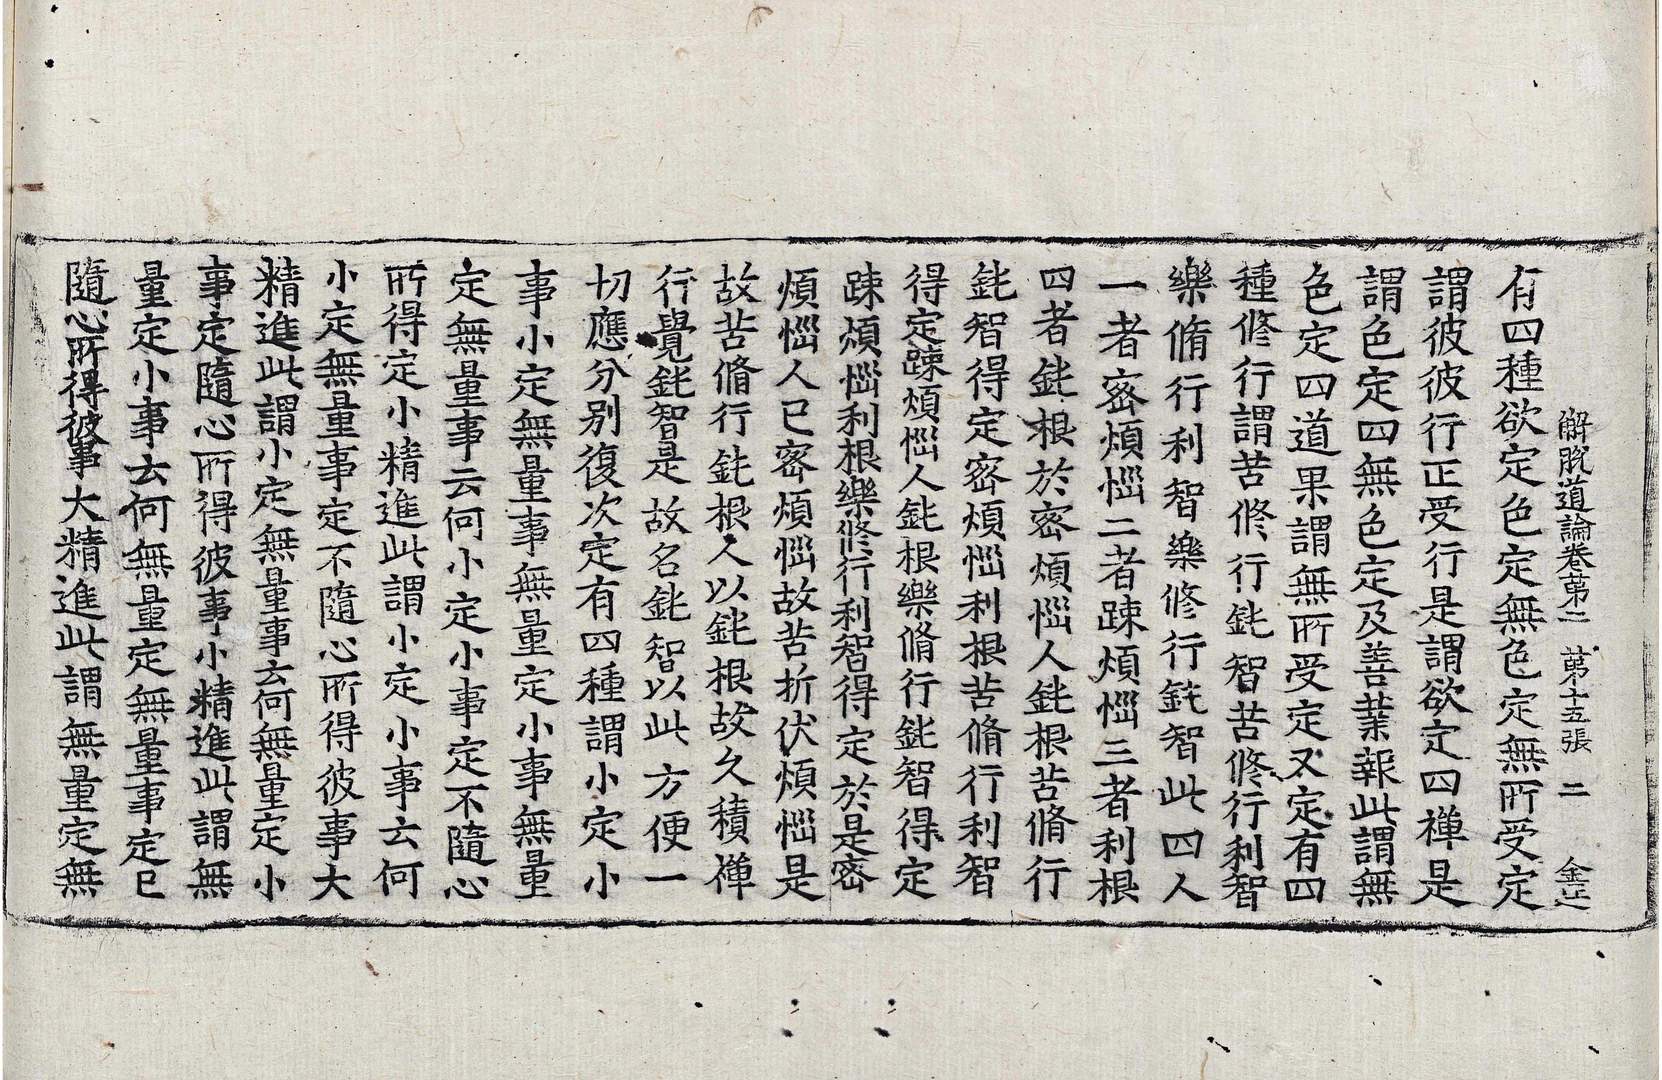 解脫道論卷第二　第十五張　二　金正
有四種欲定色定無色定無所受定
謂彼彼行正受行是謂欲定四禪是
謂色定四無色定及善業報此謂無
色定四道果謂無所受定又定有四
種修行謂苦修行鈍智苦修行利智
樂脩行利智樂修行鈍智此四人
一者密煩惱二者踈煩惱三者利根
四者鈍根於密煩惱人鈍根苦脩行
鈍智得定密煩惱利根苦脩行利智
得定踈煩惱人鈍根樂脩行鈍智得定
踈煩惱利根樂修行利智得定於是密
煩惱人已密煩惱故苦折伏煩惱是
故苦脩行鈍根人以鈍根故久積禪
行覺鈍智是故名鈍智以此方便一
切應分別復次定有四種謂小定小
事小定無量事無量定小事無量
定無量事云何小定小事定不隨心
所得定小精進此謂小定小事云何
小定無量事定不隨心所得彼事大
精進此謂小定無量事云何無量定小
事定隨心所得彼事小精進此謂無
量定小事云何無量定無量事定已
隨心所得彼事大精進此謂無量定無